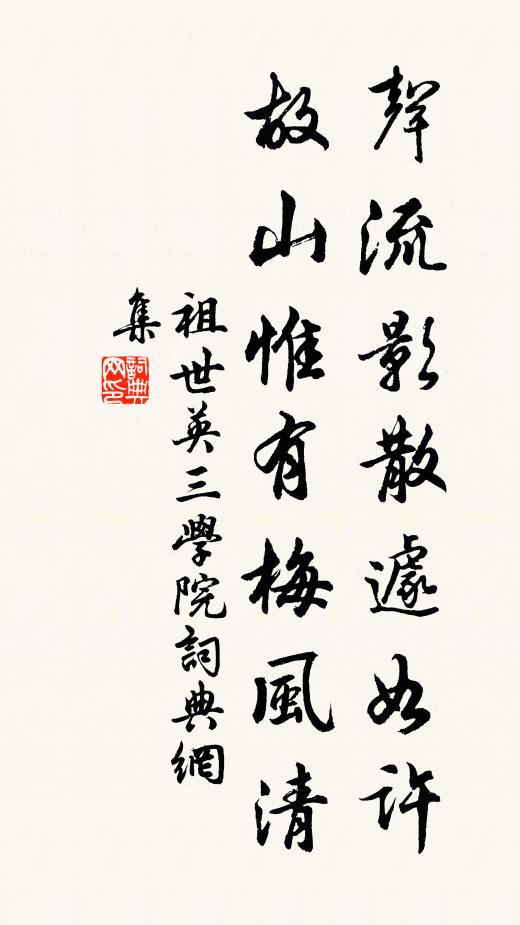 聲流影散遽如許
故山惟有梅風清
祖世英三學院詞典網
集
詞典网印